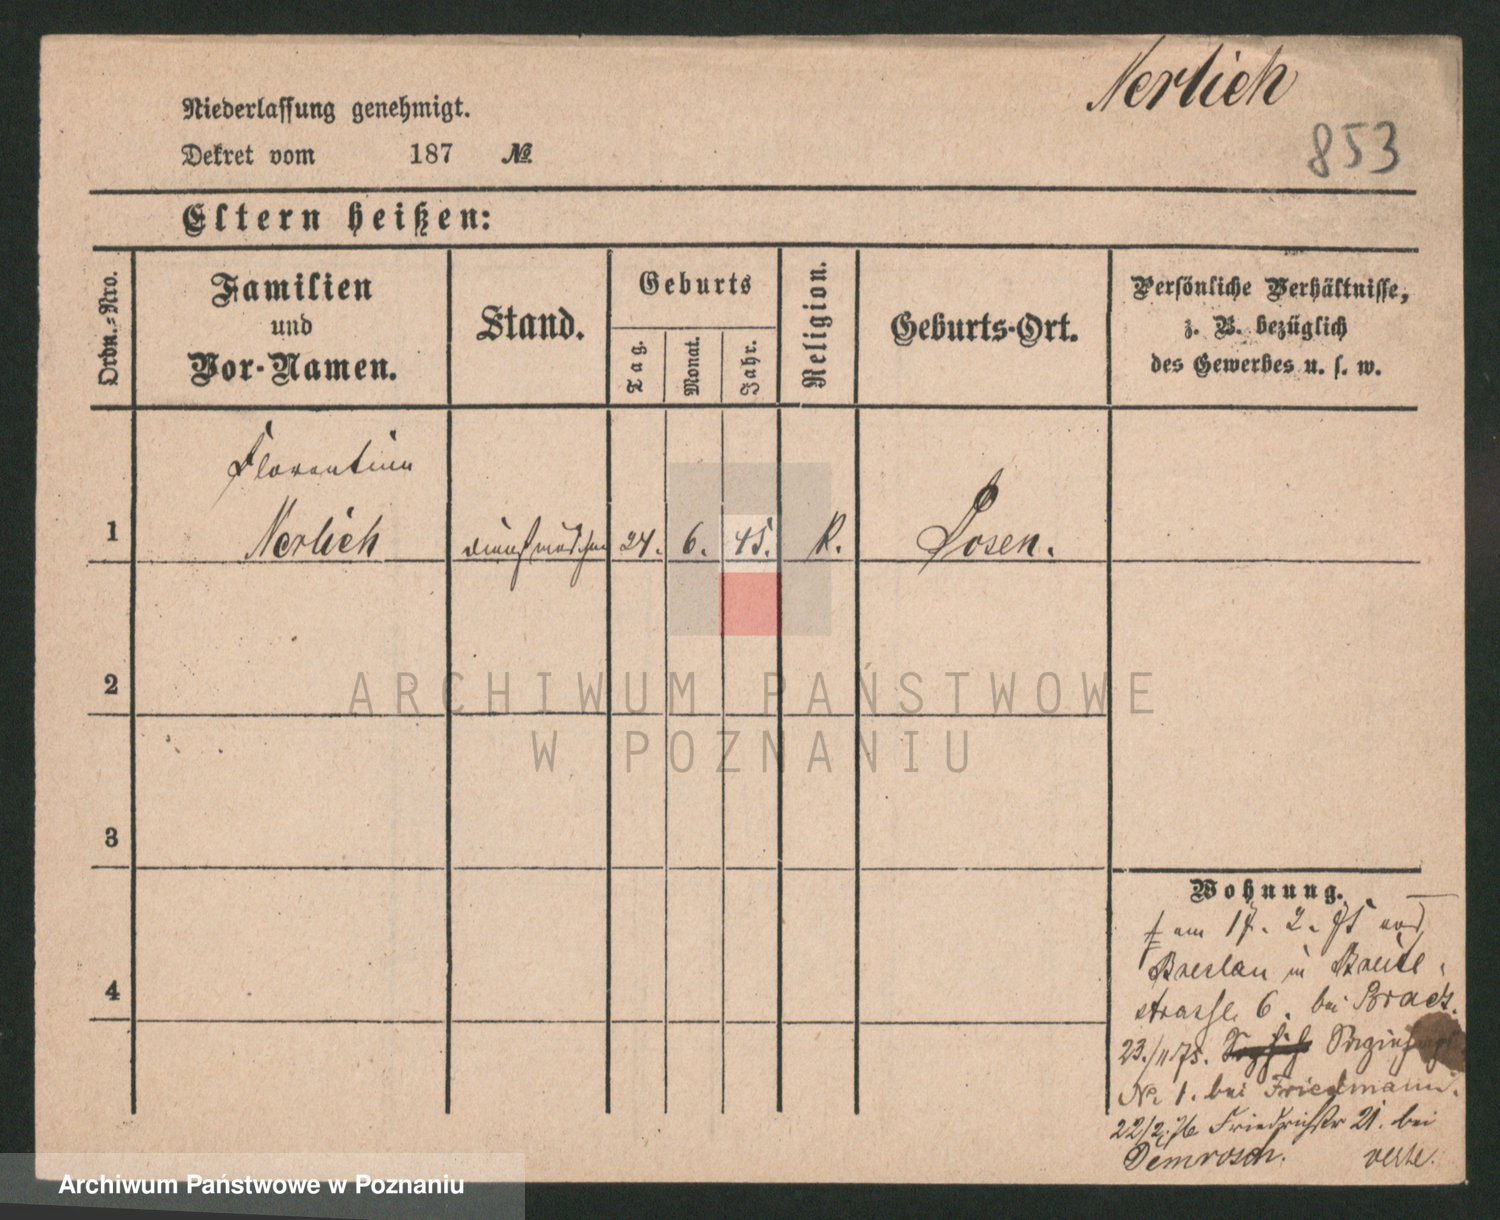 Nerlich
853
Niederlassung genehmigt.
Dekret vom 187 №
Eltern heißen:
Ordn.-Nro.
Familien
und
Vor-Namen.
Stand.
Geburts
Tag.
Monat.
Jahr.
Religion.
Geburts-Ort.
Persönliche Verhältnisse,
z. B. bezüglich
des Gewerbes u. s. w.
1
Florentine
Nerlich
Dienstmädchen
24.
6.
45.
K.
Posen.
2
ARCHIWUM PAŃSTWOWE
W POZNANIU
3
4
Wohnung.
am 17. 2. 75 aus
Breslau in Breite-
strasse 6. bei
23./11 75.
No 1. bei Friedmann.
22/2. 76 Friedrichstr 21. bei
verte.
Archiwum Państwowe w Poznaniu